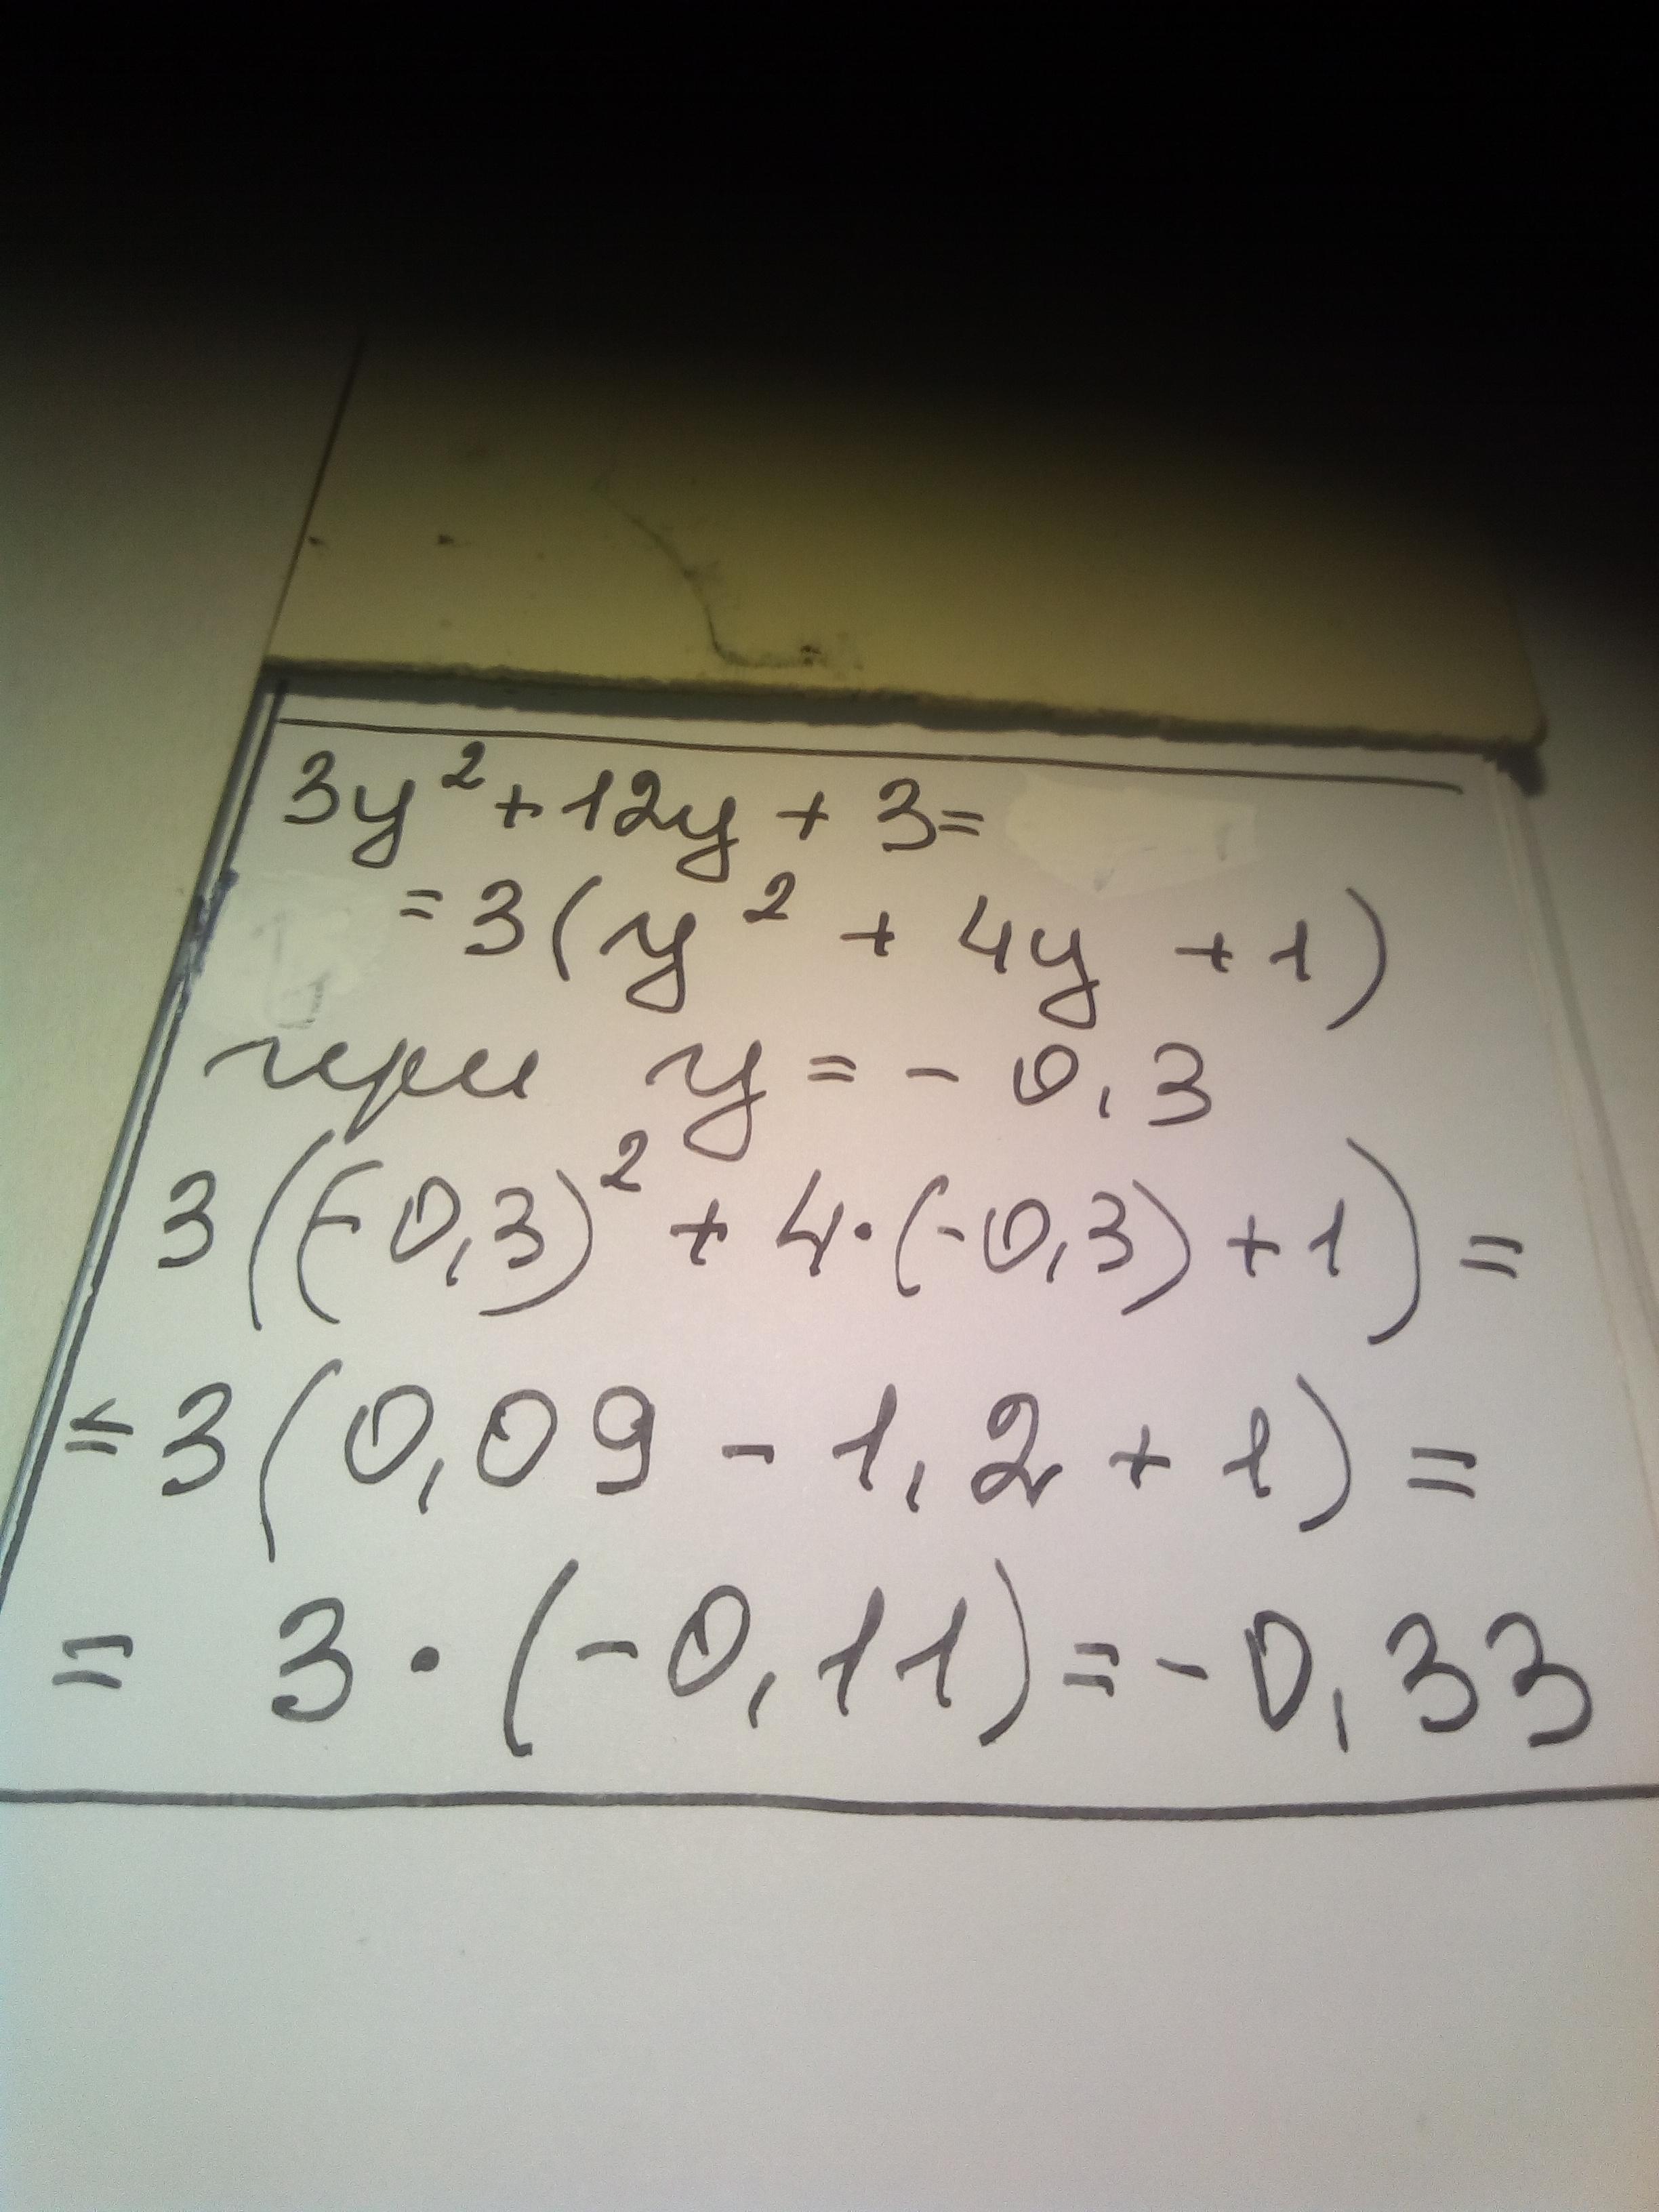 3y² + 12y + 3 =
= 3(y² + 4y + 1)
при y = - 0,3
3((-0,3)² + 4·(-0,3) + 1) =
= 3(0,09 - 1,2 + 1) =
= 3·(-0,11) = - 0,33